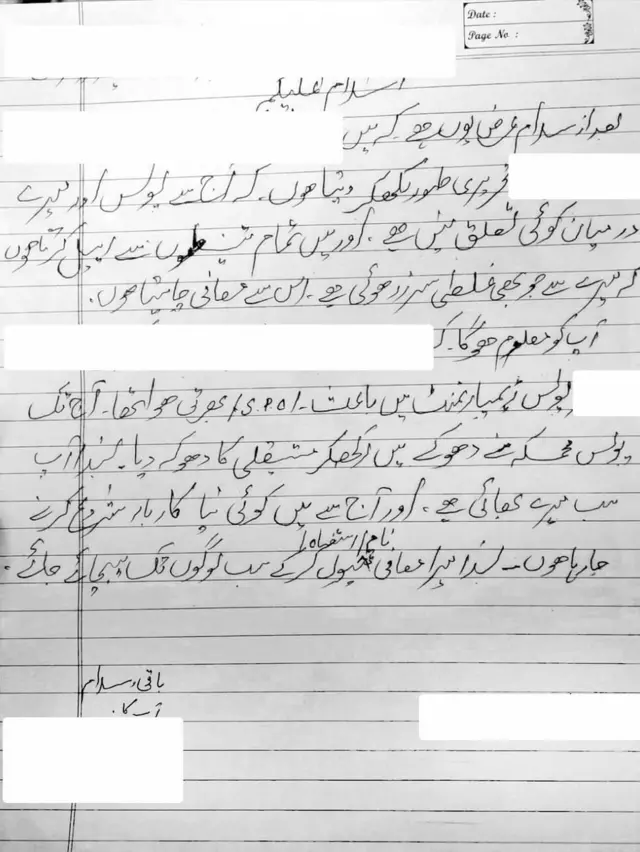 Date :
Page No :
اسلام علیکم
بعد از سلام عرض یوں ہے۔ کہ میں
تحریری طور لکھکر دیتا ہوں۔ کہ آج سے پولس اور میرے
درمیان کوئی تعلق نہیں ہے۔ اور میں تمام سے اپیل کرتا ہوں
کہ میرے سے جو بھی غلطی سرزد ہوئی ہے۔ اس سے معافی چاہتا ہوں۔
آپ کو معلوم ہوگا۔ کہ
پولس ڈیپارٹمنٹ میں باعث۔ (S.P.O) بھرتی ہوا تھا۔ آج تک
پولس محکمہ نے دھوکے میں رکھکر مستقلی کا دھوکہ دیا۔ لہذا آپ
سب میرے بھائی ہے۔ اور آج سے میں کوئی نیا کاربار شروع کرنے
جا رہا ہوں۔ لہذا میرا معافی نامہ/استفہاہ قبول کرکے سب لوگوں تک پہنچائے جائے۔
باقی سلام
آپ کا۔